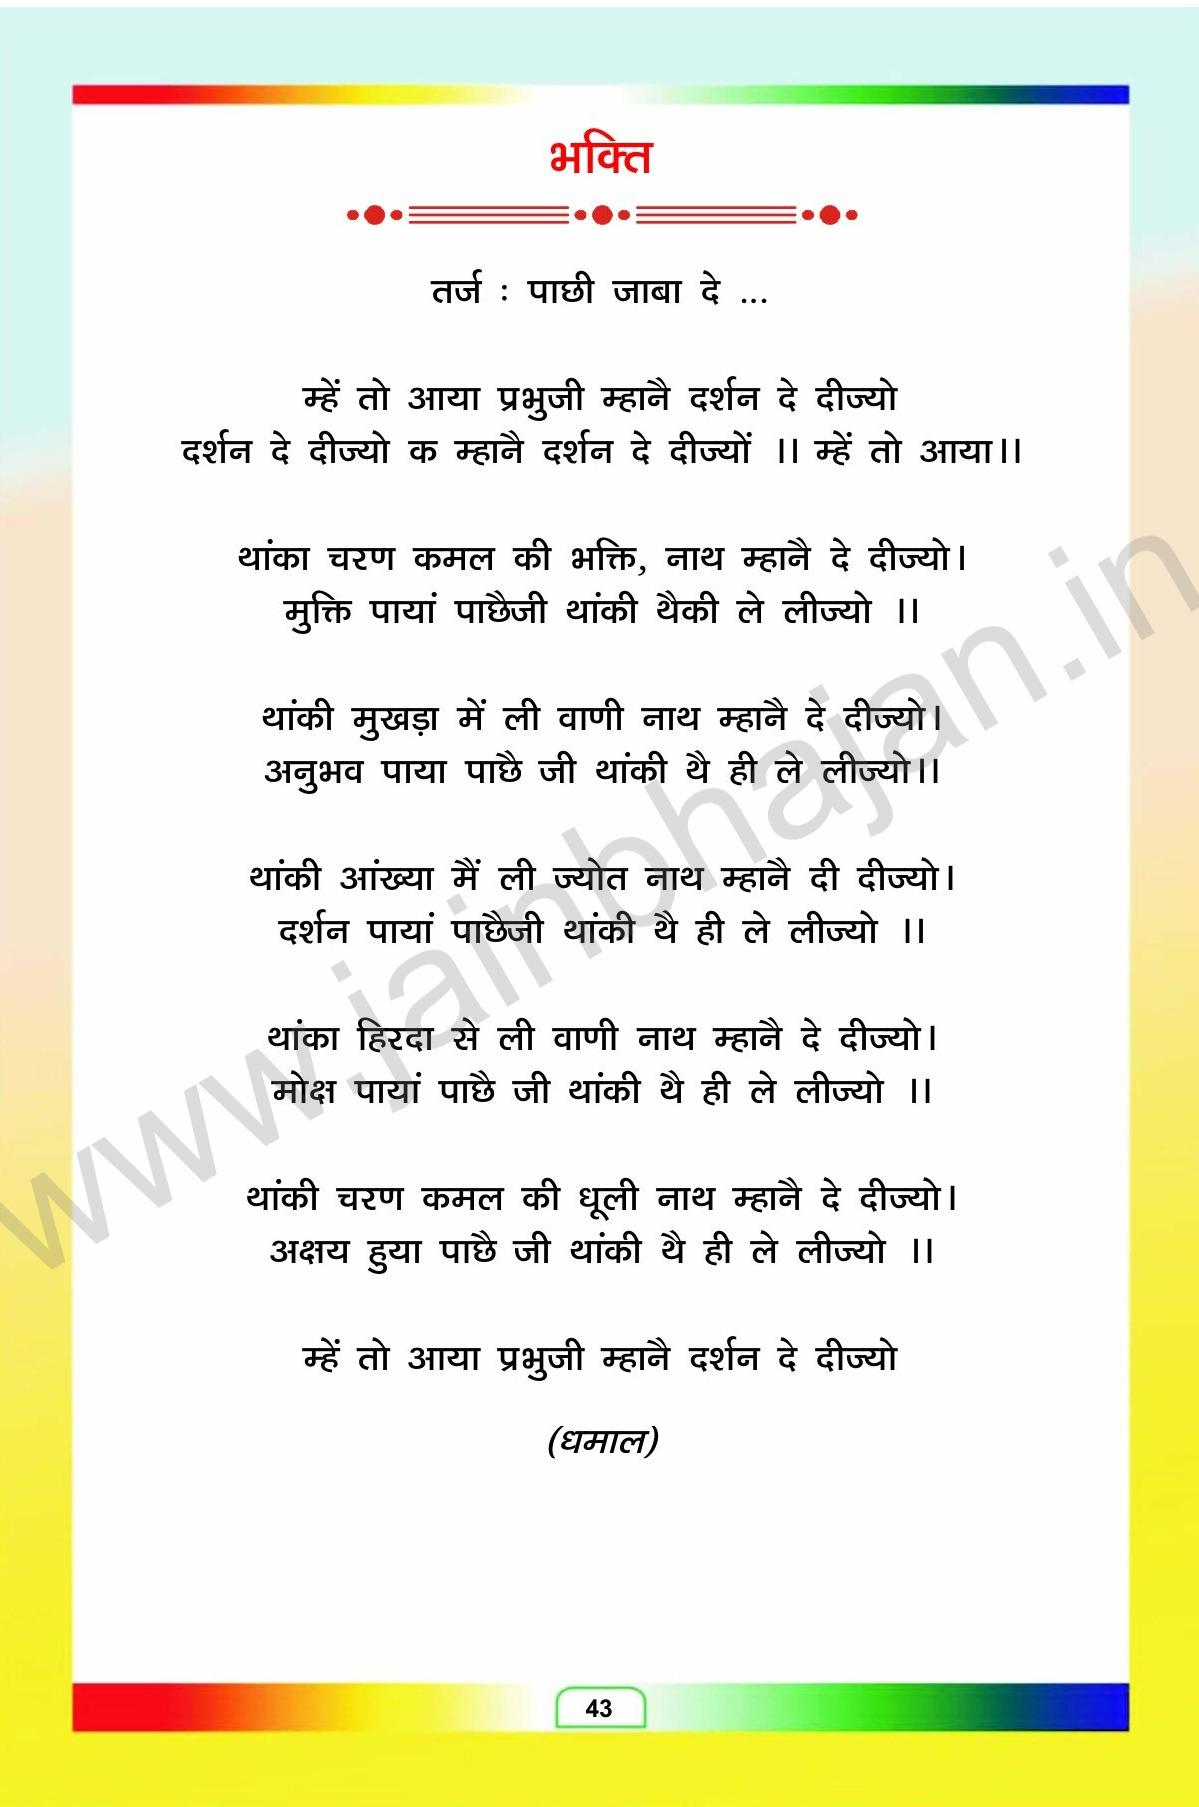 भक्ति
तर्ज : पाछी जाबा दे ...
म्हें तो आया प्रभुजी म्हानै दर्शन दे दीज्यो
दर्शन दे दीज्यो क म्हानै दर्शन दे दीज्यों ।। म्हें तो आया।।
थांका चरण कमल की भक्ति, नाथ म्हानै दे दीज्यो।
मुक्ति पायां पाछैजी थांकी थैकी ले लीज्यो ।।
थांकी मुखड़ा में ली वाणी नाथ म्हानै दे दीज्यो।
अनुभव पाया पाछै जी थांकी थै ही ले लीज्यो।।
थांकी आंख्या मैं ली ज्योत नाथ म्हानै दी दीज्यो।
दर्शन पायां पाछैजी थांकी थै ही ले लीज्यो ।।
थांका हिरदा से ली वाणी नाथ म्हानै दे दीज्यो।
मोक्ष पायां पाछै जी थांकी थै ही ले लीज्यो ।।
थांकी चरण कमल की धूली नाथ म्हानै दे दीज्यो।
अक्षय हुया पाछै जी थांकी थै ही ले लीज्यो ।।
म्हें तो आया प्रभुजी म्हानै दर्शन दे दीज्यो
(धमाल)
43
www.jainbhajan.in